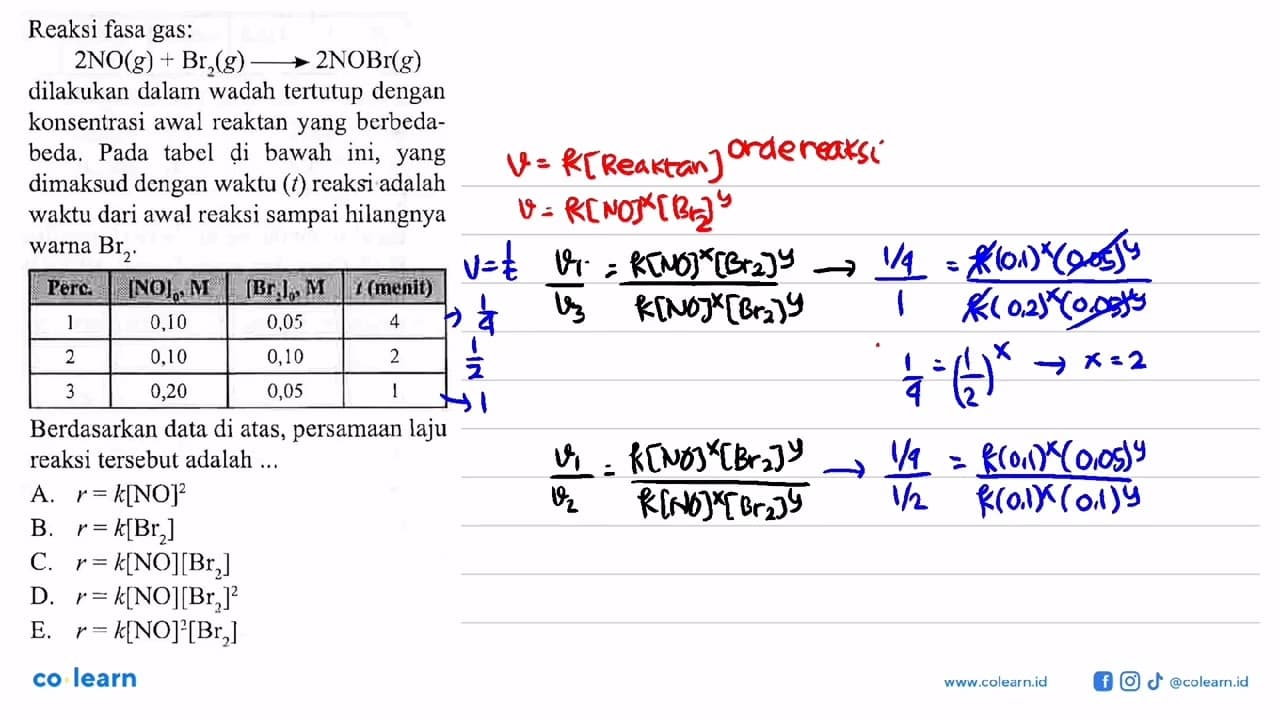 Reaksi fasa gas:
2NO(g) + Br₂(g) ⟶ 2NOBr(g)
dilakukan dalam wadah tertutup dengan
konsentrasi awal reaktan yang berbeda-
beda. Pada tabel di bawah ini, yang
dimaksud dengan waktu (t) reaksi adalah
waktu dari awal reaksi sampai hilangnya
warna Br₂.
Perc. [NO]₀, M [Br₂]₀, M t (menit)
1 0,10 0,05 4
2 0,10 0,10 2
3 0,20 0,05 1
Berdasarkan data di atas, persamaan laju
reaksi tersebut adalah ...
A. r = k[NO]²
B. r = k[Br₂]
C. r = k[NO][Br₂]
D. r = k[NO][Br₂]²
E. r = k[NO]²[Br₂]
v = k[Reaktan]^orde reaksi
v = k[NO]^x[Br₂]^y
v = 1/t
→ 1/4
1/2
→ 1
v₁/v₃ = k[NO]^x[Br₂]^y / k[NO]^x[Br₂]^y → 1/4 / 1 = k(0,1)^x(0,05)^y / k(0,2)^x(0,05)^y
1/4 = (1/2)^x → x = 2
v₁/v₂ = k[NO]^x[Br₂]^y / k[NO]^x[Br₂]^y → 1/4 / 1/2 = k(0,1)^x(0,05)^y / k(0,1)^x(0,1)^y
co learn
www.colearn.id
@colearn.id